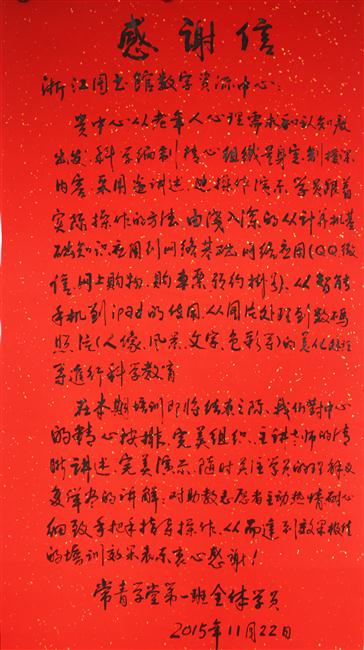 感谢信
浙江图书馆数字资源中心:
贵中心从老年人心理需求和认知
出发,科学编制,精心组织,量身定制授课
内容,采用边讲述,边操作演示,学员跟着
实际操作的方法,由浅入深的从计算机基
础知识应用到网络基础,网络应用(QQ、微
信、网上购物、购车票、预约挂号),从智能
手机到ipad的使用,从图片处理到数码
照片(人像、风景、文字、色彩等)的美化处理
等进行科学教育
在本期培训即将结束之际,我们对中心
的精心安排、完美组织、主讲老师的清
晰讲述、完美演示、随时关注学员的理解及
复的讲解;对助教志愿者主动热情耐心
细致手把手指导操作,从而达到效果极佳
的培训效果表示衷心感谢!
常青学堂第一班全体学员
2015年11月22日